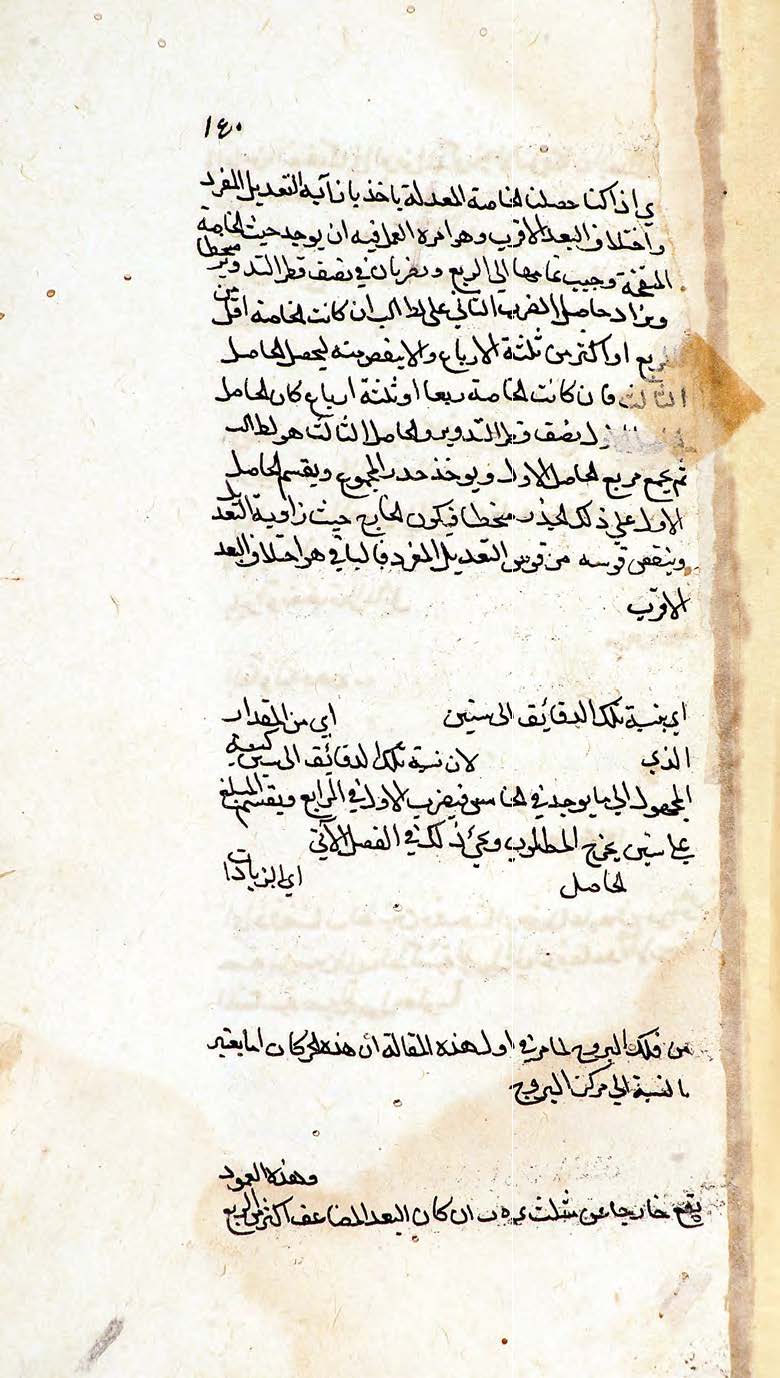 ١٤٠
ي اذا كنا حصلنا الخاصة المعدلة باخذ بازائه التعديل المفرد
واختلاف البعد الاقرب وهو امره العمل فيه ان يوجد جيب الخاصة
المنقحة وجيب تمامها الي الربع ويضربان في نصف قطر التدوير منحطا
ويزاد حاصل الضرب الثاني علي لط الب ان كانت الخاصة اقل من
الربع او اكثر من ثلثة الارباع والا ينقص منه ليحصل الحاصل
الثالث فان كانت الخاصة ربعا او ثلثة ارباع كان الحاصل
نصف قطر التدوير والحاصل الثالث هو لط الب
ثم يجمع مربع الحاصل الاول ويوخذ جدر المجموع ويقسم الحاصل
الاول علي ذلك الجذر منحطا فيكون الخارج جيب زاوية التعديل
وينقص قوسه من قوس التعديل المفرد فالباقي هو اختلاف البعد
الاقرب
اي بنسبة تلك الدقائق الى ستين اي من المقدار
الذي لان نسبة تلك الدقائق الى ستين كنسبة
المجهول الي ما يوجد في الخامس فيضرب الاول في الرابع ويقسم المبلغ
علي ستين يخرج المطلوب ويجئ ذلك في الفصل الآتي
الحاصل اي الزيادات
من فلك البروج لما مر في اول هذه المقالة أن هذه الحركات انما يعتبر
بالنسبة الي مركز البروج
وهذه العمود
يقع خارجا عن مثلث ء ه ب ان كان البعد المضاعف اكثر من الربع